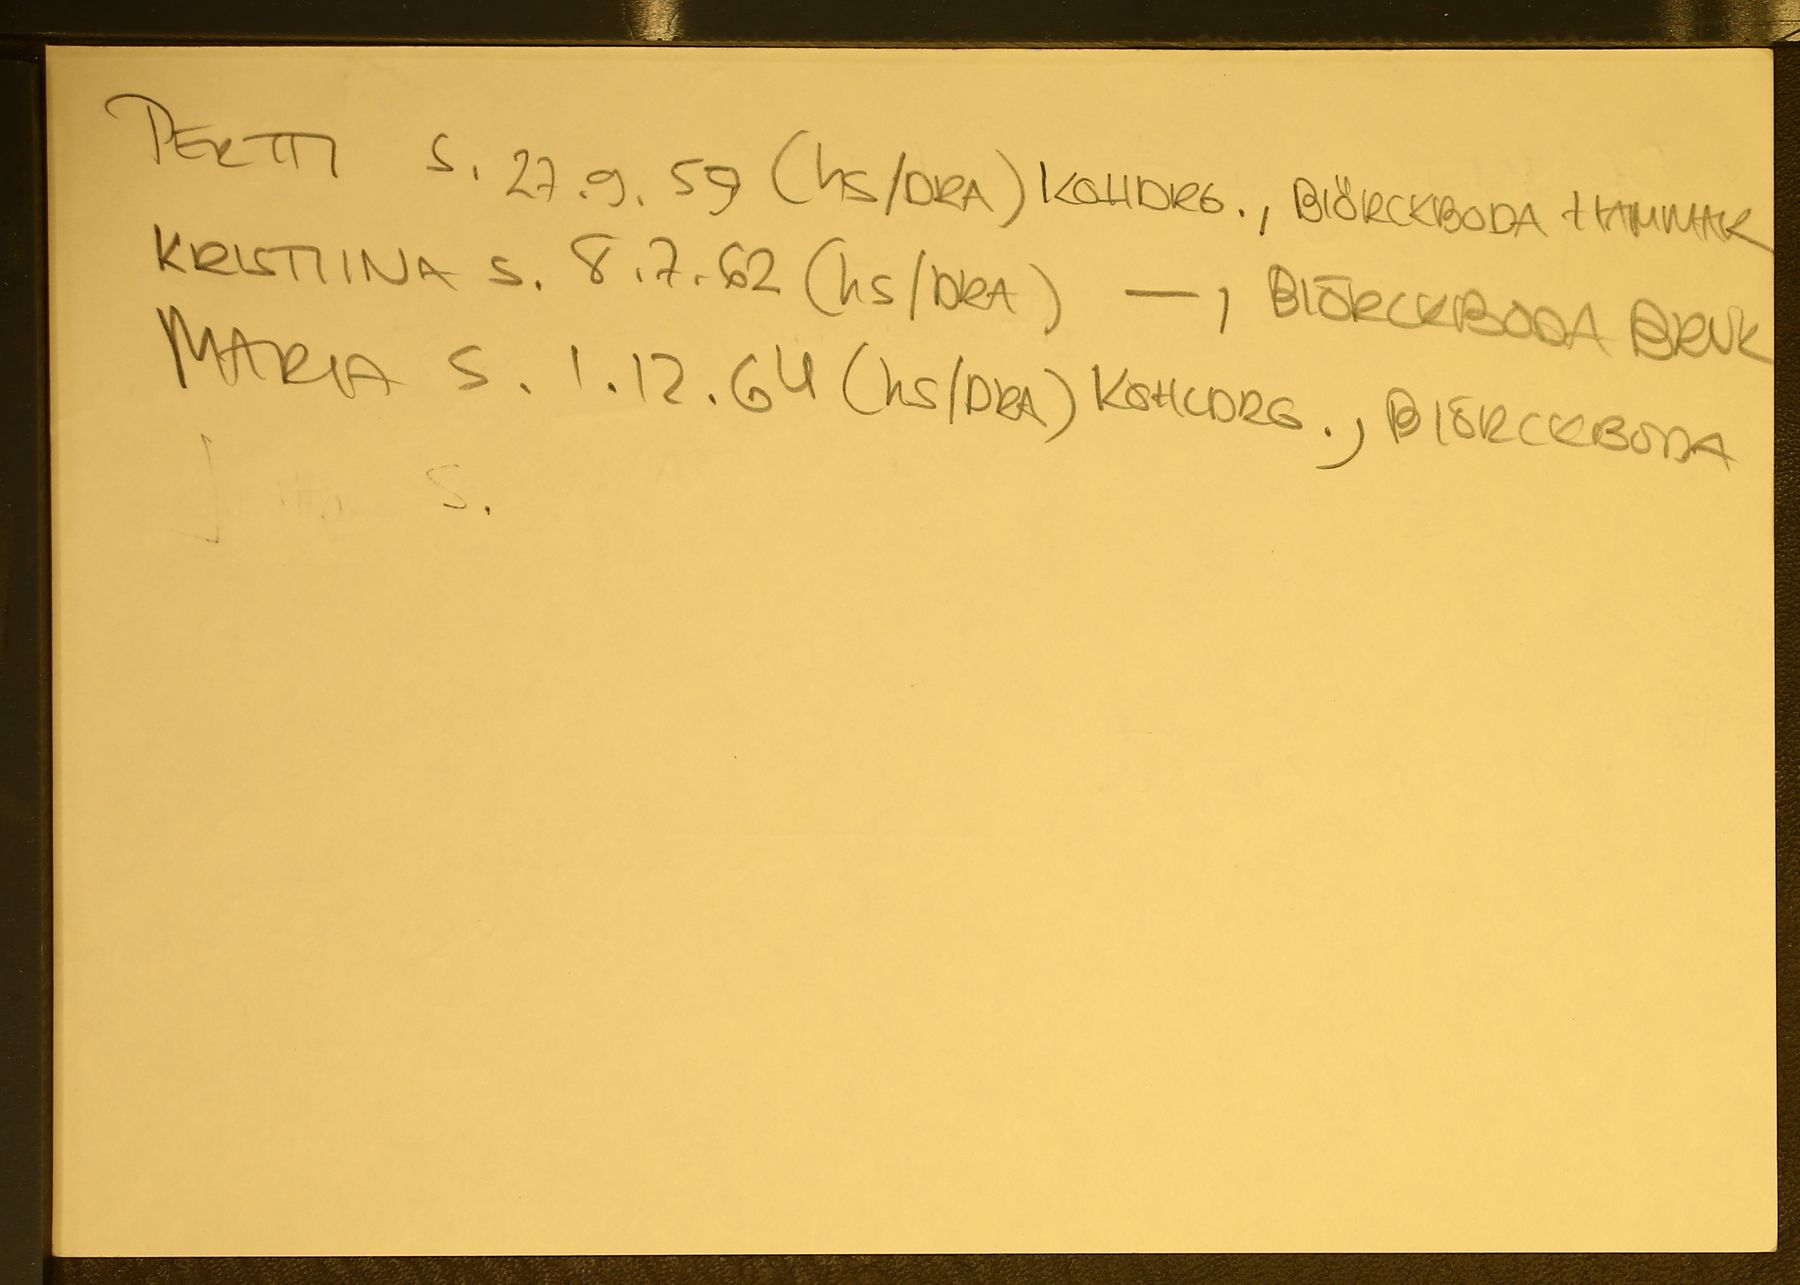 PERTTI S. 27.9.59 (hs/DRA) KOHDRG., BIÖRCKBODA HAMMAR
KRISTIINA S. 8.7.62 (hs/DRA) —, BIÖRCKBODA BRUK
MARIA S. 1.12.64 (hs/DRA) KOHLDRG., BIÖRCKBODA
S.